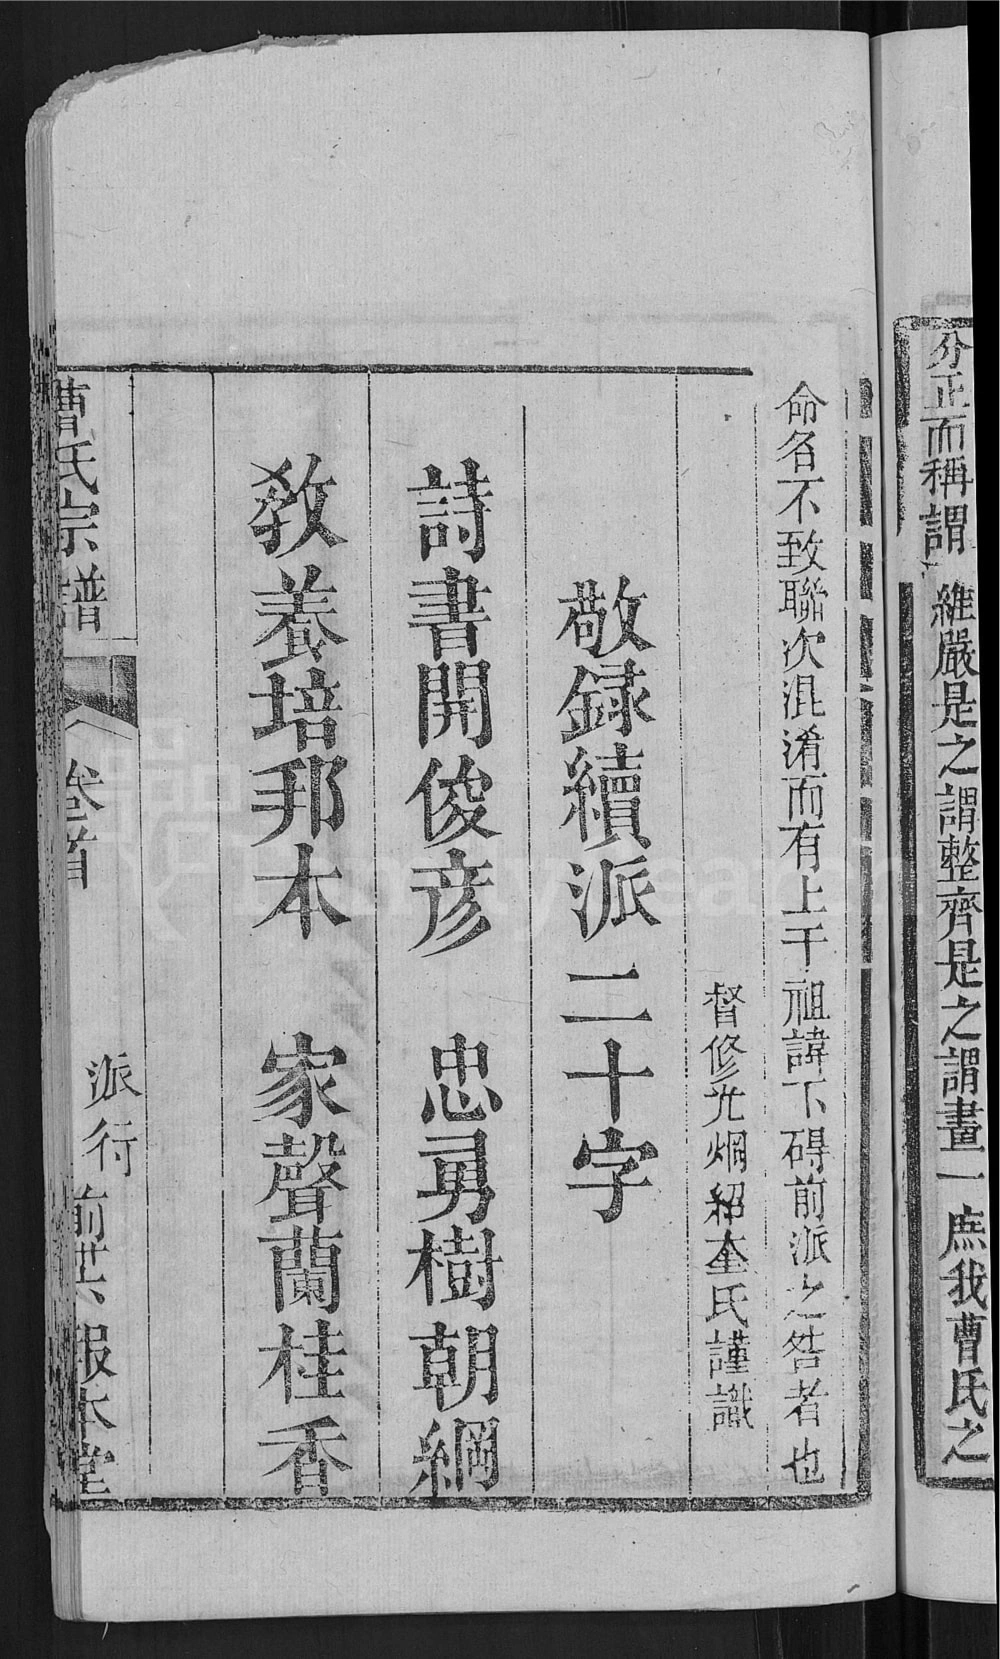 分正而稱謂維嚴是之謂整齊是之謂畫一庶我曹氏之
命名不致聯次混淆而有上干祖諱下碍前派之咎者也
督修光烱紹奎氏謹識
敬録續派二十字
詩書開俊彦　忠勇樹朝綱
敎養培邦本　家聲蘭桂香
曹氏宗譜　卷首　派行　前　報本堂